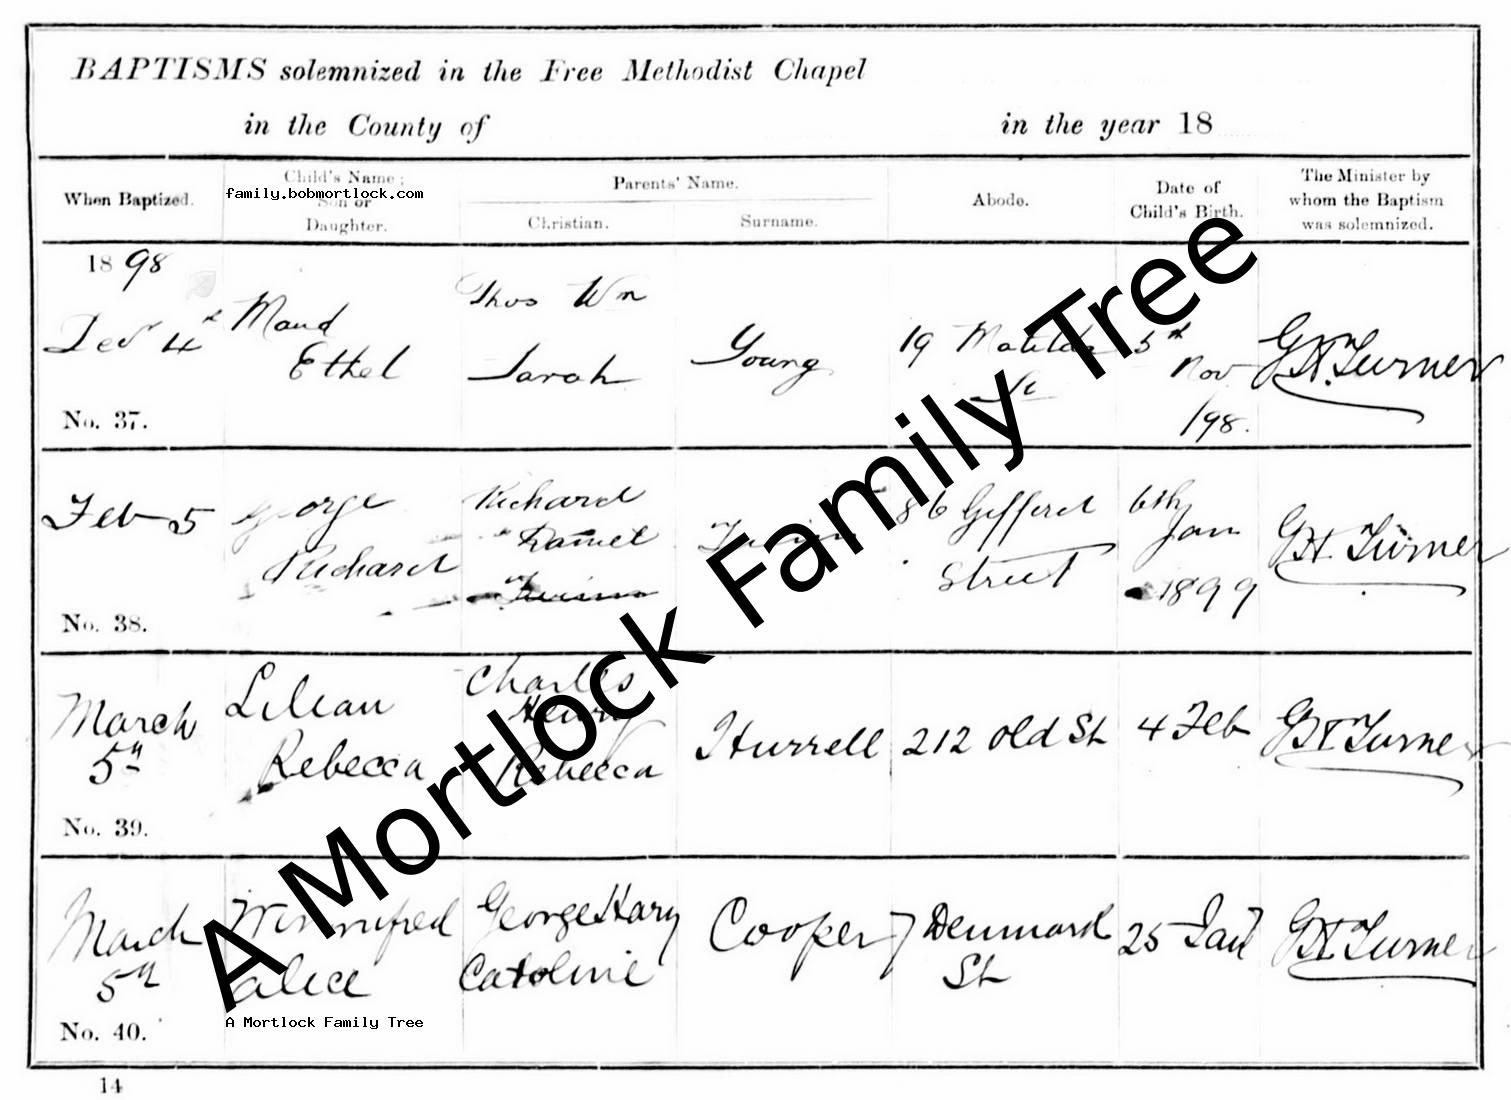 BAPTISMS solemnized in the Free Methodist Chapel
in the County of in the year 18
When Baptized. Child's Name; Son or Daughter. Parents' Name. Christian. Surname. Abode. Date of Child's Birth. The Minister by whom the Baptism was solemnized.
family.bobmortlock.com
1898
Decr 4th Maud Ethel Thos Wm Sarah Young 19 Matilda St 5th Nov /98. G.H. Turner
No. 37.
Feb 5 George Richard Richard Daniel 86 Gifford Street 6th Jan 1899 G.H. Turner
No. 38.
March 5th Lilian Rebecca Charles Henry Rebecca Hurrell 212 Old St 4 Feb G.H. Turner
No. 39.
March 5th Winnifred Alice George Harry Caroline Cooper 7 Denmark St 25 Jany G.H. Turner
No. 40.
A Mortlock Family Tree
A Mortlock Family Tree
14